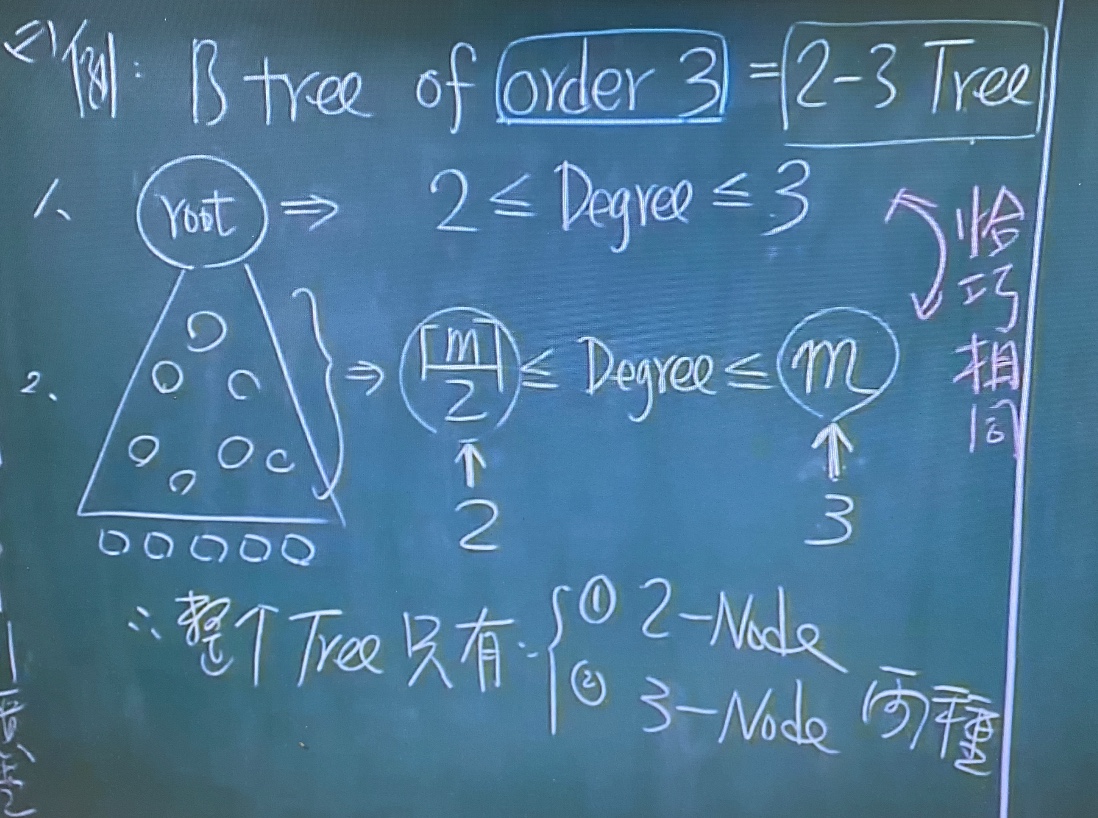 例: B tree of order 3 = 2-3 Tree
1、 root ⇒ 2 ≤ Degree ≤ 3
2、 ⇒ ⌈m⌉/2 ≤ Degree ≤ m
↑ 2 ↑ 3
恰巧相同
∴ 整个 Tree 只有: { ① 2-Node
② 3-Node 两種